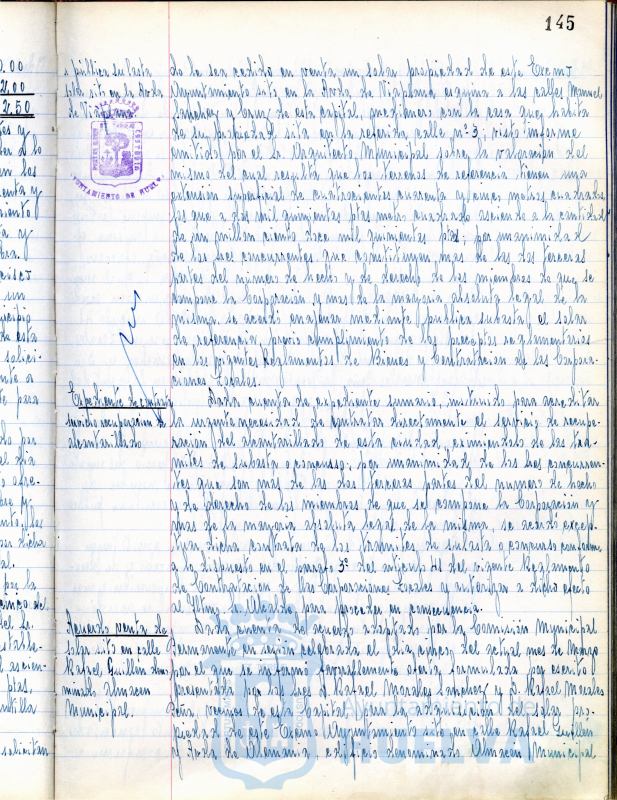 145
a pública subasta
solar sito en la Avda
de Viaplana.
AYUNTAMIENTO DE HUELVA
do le sea cedido en venta un solar propiedad de este Excmo
Ayuntamiento sito en la Avda de Viaplana esquina a las calles Manuel
Sanchez y Cruz de esta capital, medianero con la casa que habita
de su propiedad sita en la referida calle nº 3; visto informe
emitido por el Sr. Arquitecto Municipal sobre la valoración del
mismo del cual resulta que los terrenos de referencia tienen una
extensión superficial de cuatrocientos cuarenta y cinco metros cuadrados
los que a dos mil quinientas ptas metro cuadrado asciende a la cantidad
de un millon ciento doce mil quinientas ptas; por unanimidad
de los Sres concurrentes que constituyen mas de las dos terceras
partes del número de hecho y de derecho de los miembros de que se
compone la Corporación y mas de la mayoria absoluta legal de la
misma, se acordó enajenar mediante pública subasta el solar
de referencia, previo cumplimiento de los preceptos reglamentarios
en los vigentes Reglamentos de Bienes y Contratación de las Corpora-
ciones Locales.
Expediente de contrat
servicio recuperación del
alcantarillado
Dada cuenta de expediente sumario, instruido para acreditar
la urgente necesidad de contratar directamente el servicio de recupe-
ración del alcantarillado de esta ciudad, eximiendo de los trá-
mites de subasta o concurso; por unanimidad de los Sres concurren-
tes que son mas de las dos terceras partes del numero de hecho
y de derecho de los miembros de que se compone la Corporación y
mas de la mayoria absoluta legal de la misma, se acordó excep-
tuar dicho contrato de los trámites de subasta o concurso conforme
a lo dispuesto en el párrafo 3º del artículo 41 del vigente Reglamento
de Contratación de las Corporaciones Locales y autorizar a dicho efecto
al Iltmo Sr Alcalde para proceder en consecuencia.
Acuerdo venta de
solar sito en calle
Rafael Guillen deno-
minado Almacen
Municipal.
Dada cuenta de acuerdo adoptado por la Comisión Municipal
Permanente en sesión celebrada el dia cinco del actual mes de Marzo
por el que se informó favorablemente oferta formulada por escrito y
presentada por los Sres D. Rafael Morales Sanchez y D. Rafael Morales
Peña, vecinos de esta Capital para la adquisición del solar pro-
piedad de este Excmo Ayuntamiento sito en calle Rafael Guillen
y Avda de Alemania edificio denominado Almacen Municipal
Ayuntamiento de
HUELVA